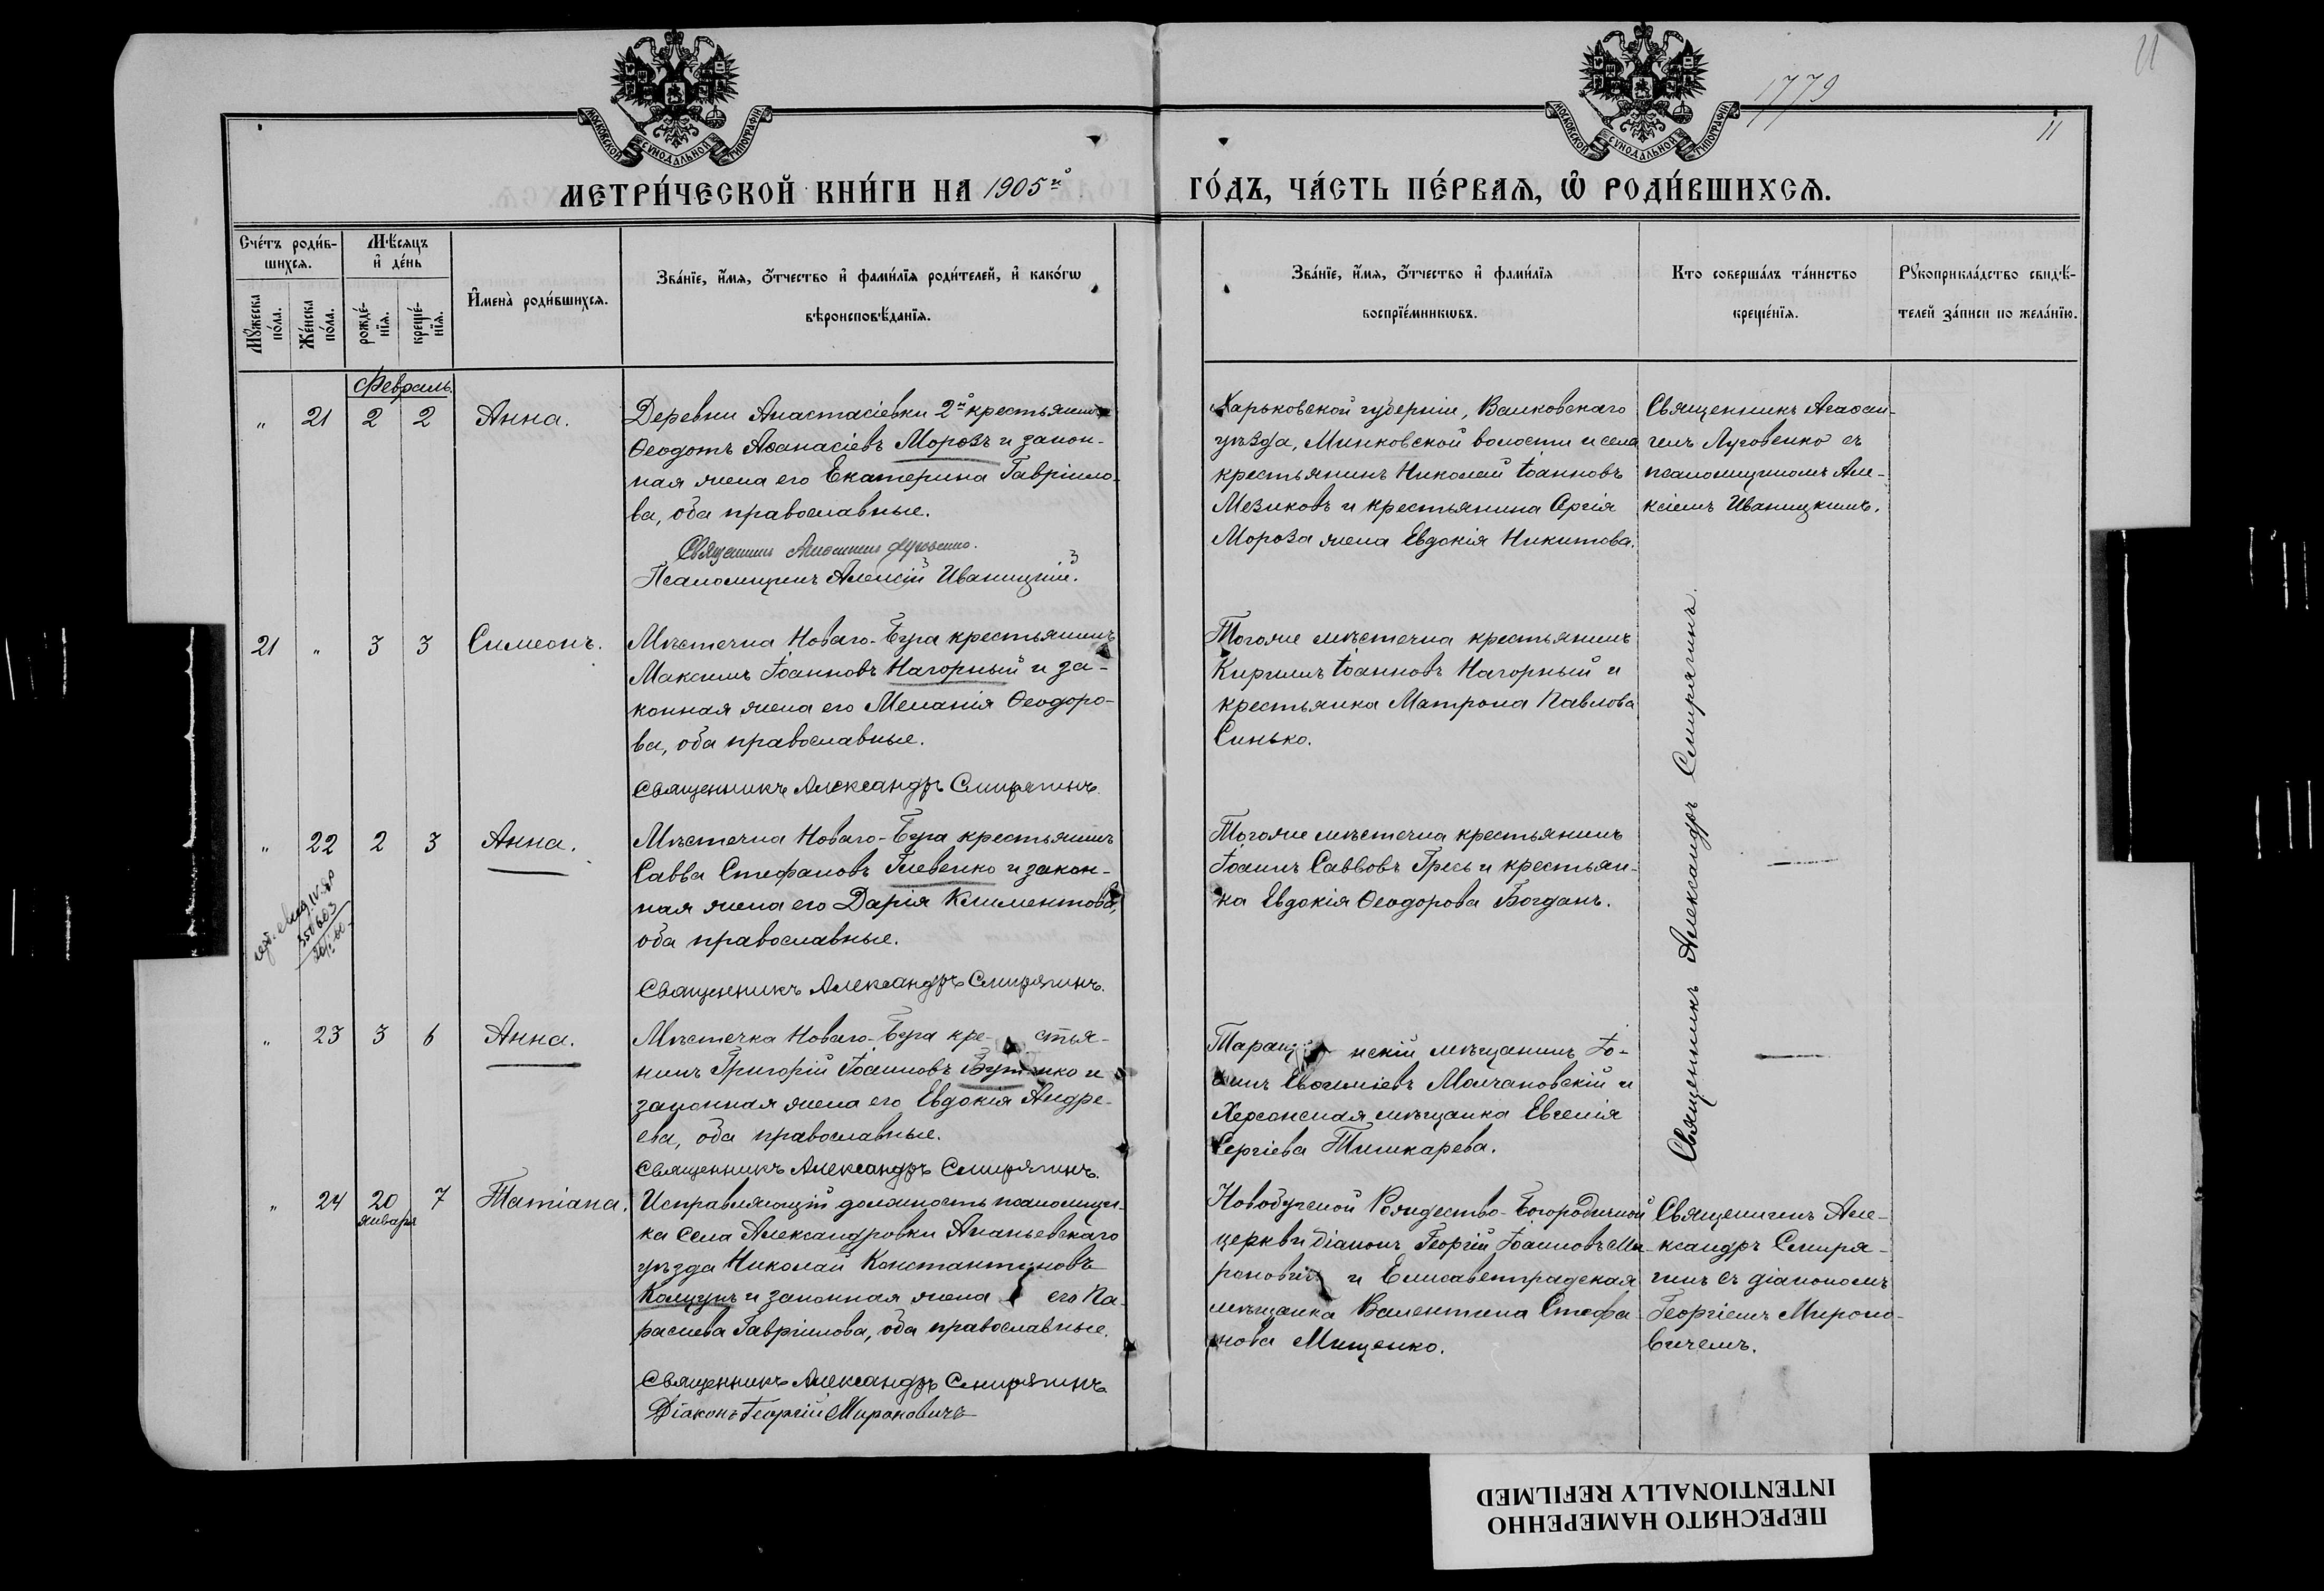 МОСКОВСКОЙ СУНОДАЛЬНОЙ ТИПОГРАФІИ
МОСКОВСКОЙ СУНОДАЛЬНОЙ ТИПОГРАФІИ
1779
11
11
МЕТРИ́ЧЕСКОЙ КНИ́ГИ НА 1905й
ГО́ДЪ, ЧА́СТЬ ПЕ́РВАѦ, Ѡ҆ РОДИ́ВШИХСѦ.
Сче́тъ роди́в-
шихсѧ.
Мѣ́сѧцъ
и҆ де́нь
Мꙋ́жеска
по́ла.
Же́нска
по́ла.
рожде́-
нїѧ.
креще́-
нїѧ.
И҆мена̀ роди́вшихсѧ.
Зва́нїе, и҆́мѧ, ѻ҆́тчество и҆ фами́лїѧ роди́телей, и҆ како́гѡ
вѣроисповѣ́данїѧ.
Зва́нїе, и҆́мѧ, ѻ҆́тчество и҆ фами́лїѧ
воспрїе́мникѡвъ.
Кто соверша́лъ та́инство
креще́нїѧ.
Рꙋкоприкла́дство свидѣ́-
телей за́писи по жела́нїю.
Февраль.
" 21 2 2 Анна.
Деревни Анастасіевки 2й крестьянинъ
Ѳеодотъ Аѳанасіевъ Морозъ и закон-
ная жена его Екатерина Гавріило-
ва, оба православные.
Священникъ Агаѳангелъ Луговенко.
Псаломщикъ Алексій Иваницкій.
Харьковской губерніи, Валковскаго
уѣзда, Минковской волости и села
крестьянинъ Николай Іоанновъ
Мезиковъ и крестьянина Сергія
Мороза жена Евдокія Никитова.
Священникъ Агаѳан-
гелъ Луговенко съ
псаломщикомъ Але-
ксіемъ Иваницкимъ.
21 " 3 3 Симеонъ.
Мѣстечка Новаго-Буга крестьянинъ
Максимъ Іоанновъ Нагорный и за-
конная жена его Меланія Ѳеодоро-
ва, оба православные.
Священникъ Александръ Смирягинъ.
Тогоже мѣстечка крестьянинъ
Кириллъ Іоанновъ Нагорный и
крестьянка Матрона Павлова
Синько.
Священникъ Александръ Смирягинъ.
" 22 2 3 Анна.
Мѣстечка Новаго-Буга крестьянинъ
Савва Стефановъ Глевенко и закон-
ная жена его Дарія Климентова,
оба православные.
Священникъ Александръ Смирягинъ.
Тогоже мѣстечка крестьянинъ
Іоаннъ Саввовъ Гресь и крестьян-
ка Евдокія Ѳеодорова Богданъ.
" 23 3 6 Анна.
Мѣстечка Новаго-Буга кре- стья-
нинъ Григорій Іоанновъ и
законная жена его Евдокія Андре-
ева, оба православные.
Священникъ Александръ Смирягинъ.
Таращ нскій мѣщанинъ Іо-
аннъ Евѳиміевъ Молчановскій и
Херсонская мѣщанка Евгенія
Сергіева Тишкарева.
" 24 20 января 7 Татіана.
Исправляющій должность псаломщи-
ка села Александровки Ананьевскаго
уѣзда Николай Константиновъ
Колцунъ и законная жена его Па-
раскева Гавріилова, оба православные.
Священникъ Александръ Смирягинъ
Діаконъ Георгій Мироновичъ
Новобугской Рождество-Богородичной
церкви діаконъ Георгій Іоанновъ Ми-
роновичъ и Елисаветградская
мѣщанка Валентина Стефа-
нова Мищенко.
Священникъ Але-
ксандръ Смиря-
гинъ съ діакономъ
Георгіемъ Мироно-
вичемъ.
ПЕРЕСНЯТО НАМЕРЕННО
INTENTIONALLY REFILMED